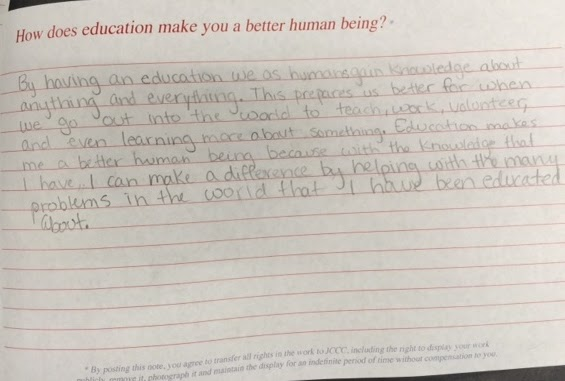 How does education make you a better human being? *
By having an education we as humans gain knowledge about
anything and everything. This prepares us better for when
we go out into the world to teach, work, volunteer,
and even learning more about something. Education makes
me a better human being because with the knowledge that
I have, I can make a difference by helping with the many
problems in the world that I have been educated
about.
* By posting this note, you agree to transfer all rights in the work to JCCC, including the right to display your work
publicly, remove it, photograph it and maintain the display for an indefinite period of time without compensation to you.